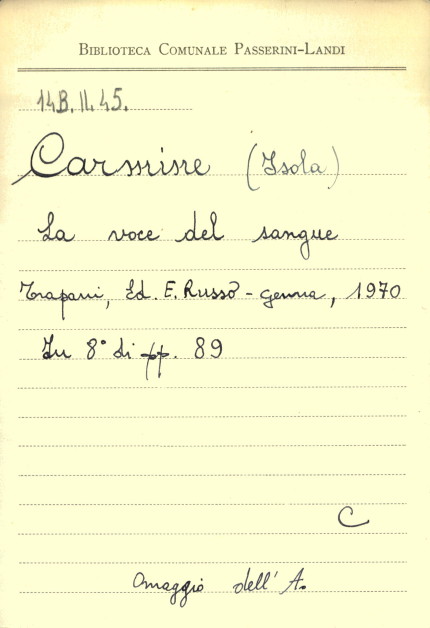 BIBLIOTECA COMUNALE PASSERINI-LANDI
14B.II.45.
Carmine (Isola)
La voce del sangue
Trapani, Ed. E. Russo - genna, 1970
In 8° di pp. 89
C
Omaggio dell' A.